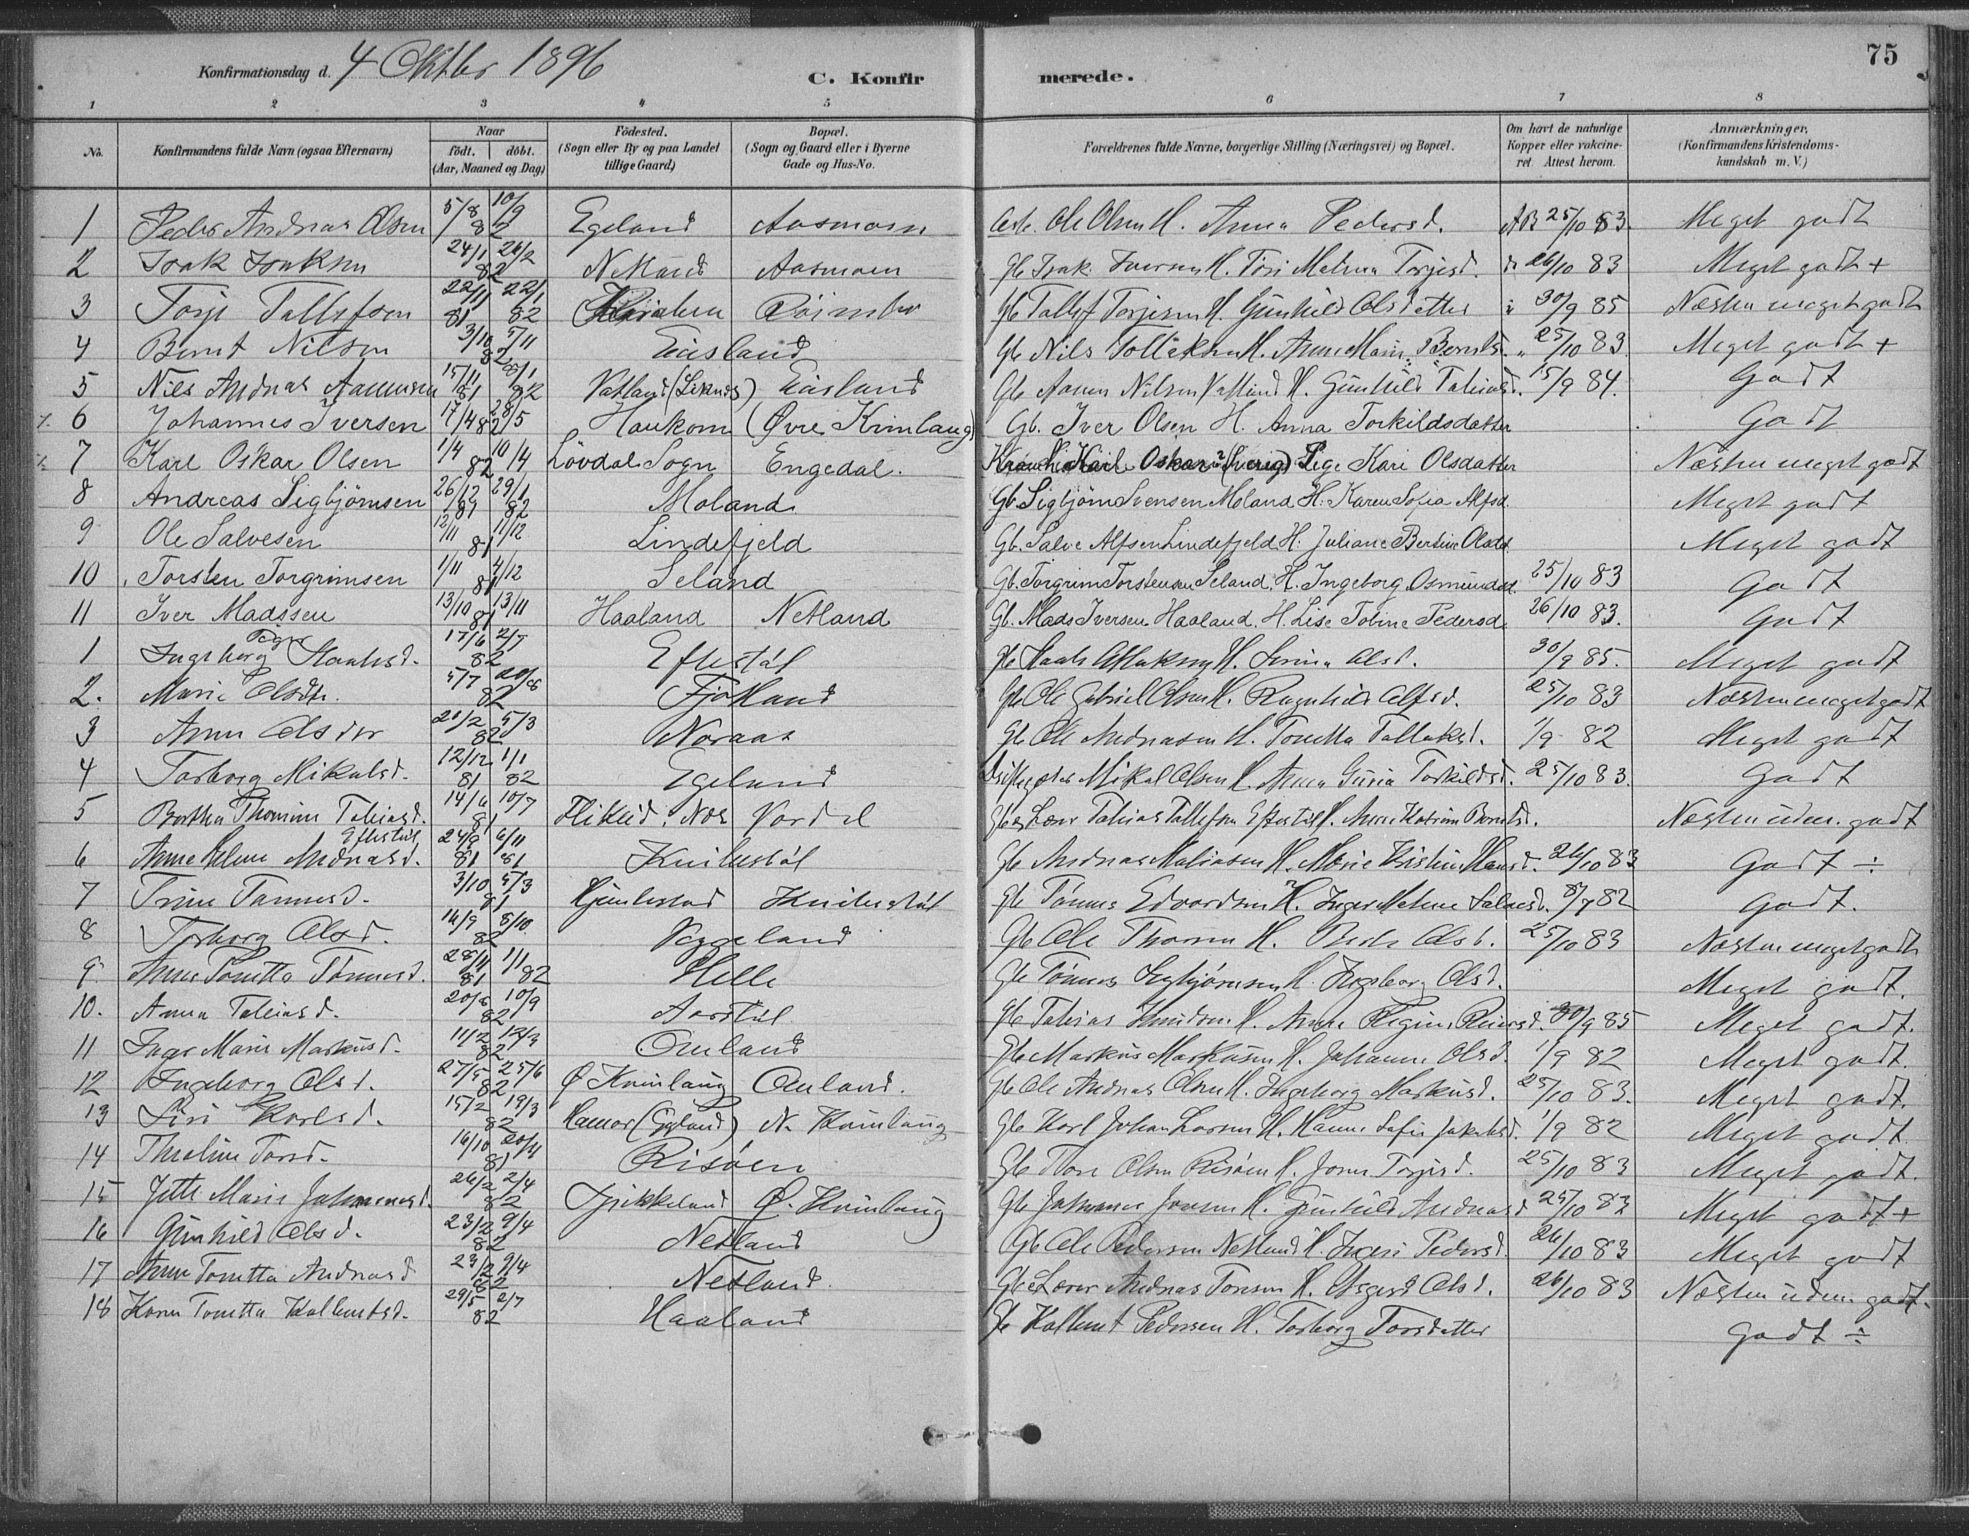 75
Konfirmationsdag d. 4 Oktbr 1896 C. Konfirmerede.
1 2 3 4 5 6 7 8
No. Konfirmandens fulde Navn (ogsaa Efternavn) Naar födt. döbt. (Aar, Maaned og Dag) Födested. (Sogn eller By og paa Landet tillige Gaard) Bopæl. (Sogn og Gaard eller i Byerne Gade og Hus-No. Forældrenes fulde Navne, borgerlige Stilling (Næringsvei) og Bopæl. Om havt de naturlige Kopper eller vakcineret. Attest herom. Anmærkninger. (Konfirmandens Kristendomskundskab m. V.)
1 Peder Andreas Olsen 5/8 10/9 82 Egeland Aasmoen Ole Olsen H. Anna Pedersd. 25/10 83. Meget godt
2 Isak Isaksen 24/1 26/2 82 Netland Aasmoen Gb Isak Iversen H. Malena Torjesd. 26/10 83 Meget godt +
3 Torje Tallefsen 22/11 81 22/1 82 Gb Tallef Torjesen H. Gunhild Olsdatter 30/9 85 Næsten meget godt
4 Bernt Nilsen 3/10 5/11 82 Eiesland Gb Nils Tollaksen H. Anne Marie Berntsd. 25/10 83. Meget godt +
5 Nils Andreas Aanensen 15/11 81 82 Vatland (Liknes) Eiesland Gb Aanen Nilsen Vatland H. Gunhild Tobiasd. 15/9 84. Godt
6 Johannes Iversen 17/4 82 28/5 Haukom (Øvre Kvinlaug) Gb. Iver Olsen H. Anna Torkildsdatter Godt
7 Karl Oskar Olsen 1/4 10/4 82 Lövdal Sogn Engedal. Karl Oskar (Sverig) Pige Kari Olsdatter Næsten meget godt
8 Andreas Sigbjörnsen 26/12 81 29/1 82 Moland Gb. Sigbjörn Svensen Moland H. Karen Sofia Alfsd. Meget godt
9 Ole Salvesen 12/11 11/12 81 Lindefjeld Gb. Salve Alfsen Lindefjeld H. Juliane Bertine Olsd. Meget godt
10 Torsten Torgrimsen 1/11 4/12 81 Seland Gb. Torgrim Torstensen Seland. H. Ingeborg Osmundsd. 25/10 83 Godt
11 Iver Madssen 13/10 13/11 81 Haaland Netland Gb. Mads Iversen Haaland. H. Lise Tobine Pedersd. 26/10 83. Godt
1 Ingeborg Haaksd. 17/6 2/7 82 Eftestöl Gb Haak Aslaksen H. Olsd. 30/9 85. Meget godt
2. Marie Olsdtr. 5/7 20/8 82 Fjotland Gb Ole Gabriel Olsen H. Ragnhild Alfsd. 25/10 83 Næsten meget godt
3 Anne Olsdtr 20/2 5/3 82 Noraas Gb Ole Andreasen H. Tonetta Tollaksd. 1/9 82 Meget godt
4 Torborg Mikalsd. 12/12 81 1/1 82 Egeland Mikal Olsen H. Anna Guria Torkildsd. 25/10 83. Godt
5 Bertha Thomine Tobiasd. Eftestöl 14/6 10/7 81 Flikeid. Nes Vordal Tobias Tallefsen Eftestöl H. Anne Katrine Berntsd. Næsten uden. godt
6 Anne Helene Andreasd. 24/8 81 6/11 81 Knibestöl Gb Andreas Mathiasen H. Marie Kristine Hansd. 26/10 83 Godt ÷
7 Trine Tønnesd. 3/10 5/3 81 Gjemlestad Knibestöl Gb Tönnes Edvardsen H. Inger Malene Salvesd. 8/7 82 Godt.
8 Torborg Olsd. 14/9 8/10 82 Veggeland Gb Ole Thorsen H. Olsd. 25/10 83 Næsten meget godt
9. Anne Tonetta Tønnesd. 28/11 81 1/1 82 Helle Gb Tønnes Sigbjørnsen H. Ingeborg Olsd. Meget godt.
10. Anna Tobiasd. 20/8 10/9 82 Aardöl Gb Tobias Knudsen H. Anne Regine Reiersd. 30/9 85 Meget godt.
11 Inger Marie Markusd. 11/2 82 Omland Gb Markus Markusen H. Johanne Olsd. 1/9 82 Meget godt.
12 Ingeborg Olsd. 27/5 25/6 82 Ø Kvinlaug Omland. Gb Ole Andreas Olsen H. Ingeborg Markusd. 25/10 83. Meget godt.
13 Siri Karlsd. 15/2 19/3 82 Hamar (Eggland) N. Kvinlaug Gb Karl Johan Larsen H. Hanne Sofie Jakobsd. 1/9 82 Meget godt.
14 Theoline Torsd. 16/10 81 Risöen Gb Tore Olsen Risöen H. Torjesd. 25/10 83 Meget godt.
15 Jette Marie Johannesd. 26/2 2/4 82 Tjikkeland Ø. Kvinlaug Gb Johannes Jonsen H. Gunhild Andreasd 25/10 83 Meget godt +
16 Gunhild Olsd. 23/2 9/4 82 Netland Gb Ole Pedersen Netland H. Pedersd. 26/10 83 Meget godt
17 Anne Tonetta Andreasd 23/2 9/4 82 Netland. Gb & Lærer Andreas Tonsen H. Olsd. 26/10 83 Næsten uden. godt.
18 Karen Tonetta Kallentsd. 29/5 2/7 82 Haaland Gb Kallent Pedersen H. Torborg Torsdatter Godt ÷